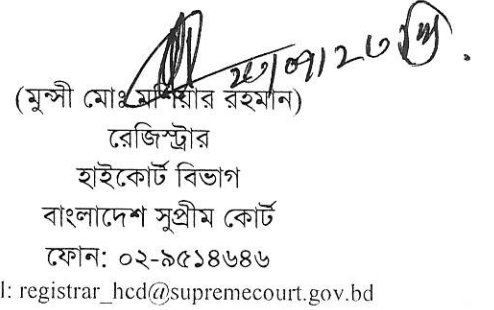 (মুন্সী মোঃ মশিয়ার রহমান)
রেজিস্ট্রার
হাইকোর্ট বিভাগ
বাংলাদেশ সুপ্রীম কোর্ট
ফোন: ০২-৯৫১৪৬৪৬
l: registrar_hcd@supremecourt.gov.bd